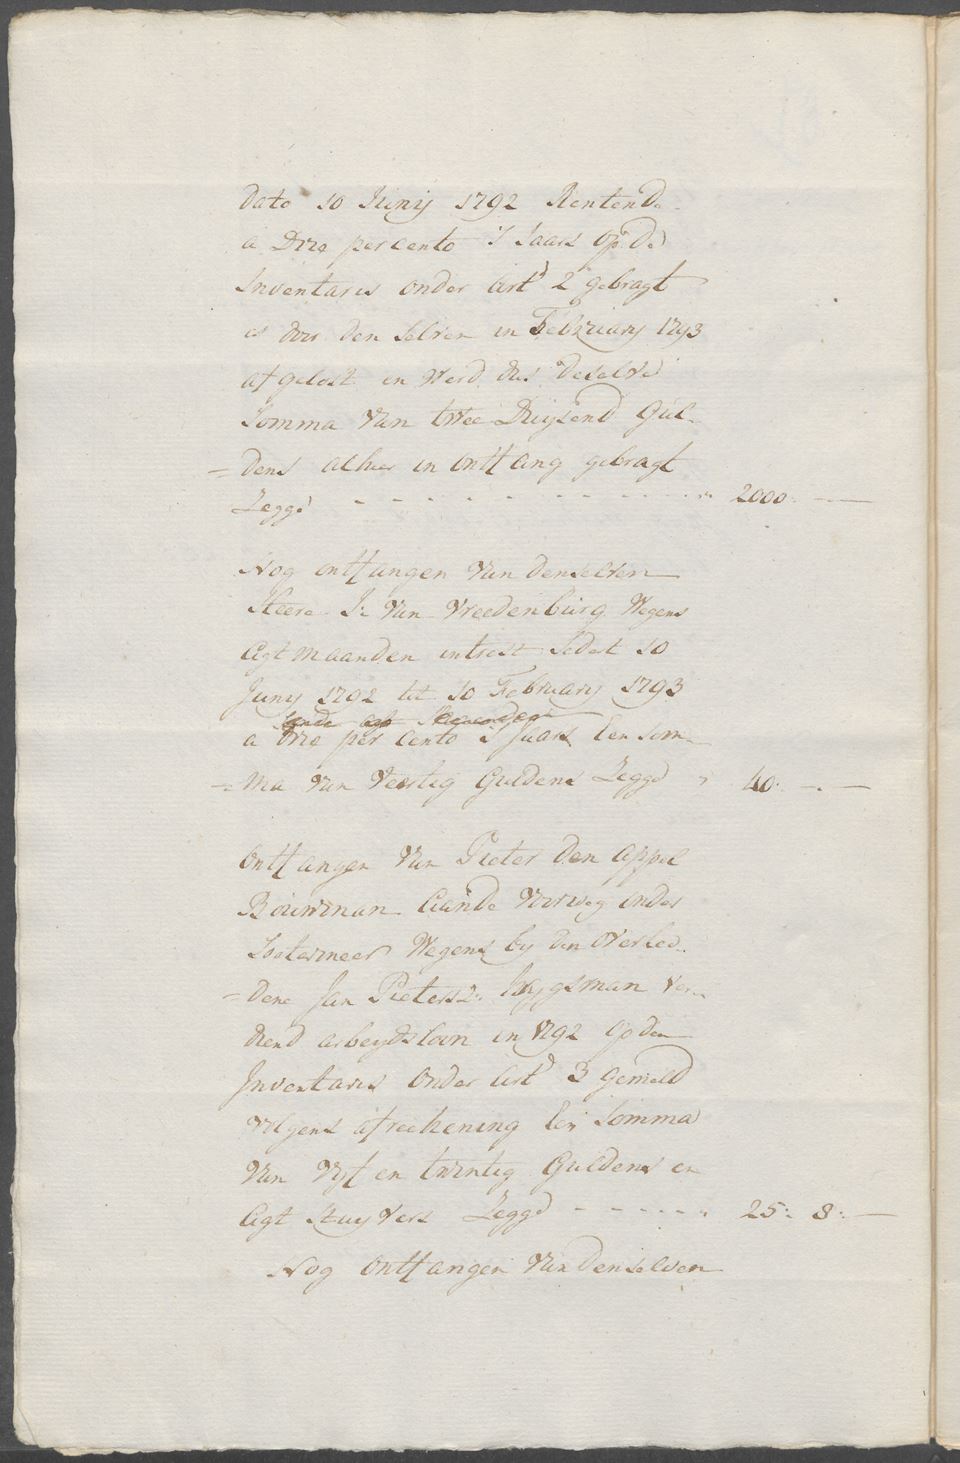 dato 10 Junij 1792 Rentende
a Drie per cento 's Jaars op de
Inventaris onder Art 2 gebragt
is door den selven in February 1793
afgelost en werd dus deselve
Somma van twee Duijsend Gul-
=dens alhier in ontfang gebragt
Zegge - - - - - - - - - - - - - " 2000:-
Nog ontfangen van denselven
Heere J: van Vreedenburg Wegens
Agt maanden intrest sedert 10
Junij 1792 tot 10 February 1793
a Drie per cento 's Jaars Een Som-
=ma van Veertig Guldens Zegge " 40:-.-
Ontfangen van Pieter den Appel
Bouwman Aande Voorweg onder
Soetermeer Wegens by den Overlee-
=dene Jan Pietersz: Krygsman ver-
diend arbeydsloon in 1792 op den
Inventaris Onder Art 3 gemeld
volgens afreekening Een Somma
van Vyf en twintig Guldens en
Agt Stuyvers Zegge - - - - - - " 25:8:-
Nog ontfangen van denselven